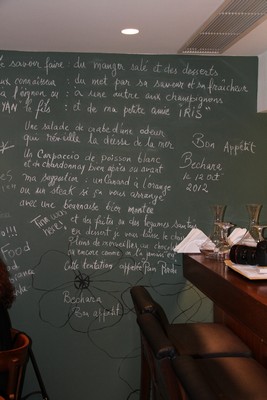 savoir faire : du manger salé et des desserts
connaisseur : du mot par sa saveur et sa fraîcheur
l'oignon ou : à une autre aux champignons
YAN le fils : et de ma petite amie IRIS
Une salade de crabe d'une odeur
qui réveille la déesse de la mer
un Carpaccio de poisson blanc
et un chardonnay bien après ou avant
ma suggestion : un canard à l'orange
ou un steak si ça vous arrange
avec une béarnaise bien montée
et des frites ou des légumes sautés
en dessert je vous laisse le choix
Plein de merveilles au chocolat
ou encore comme on l'a
Cette tentation appelée Pain Perdu
Bechara
Bon appétit
Bon Appétit
Bechara
le 12 Oct
2012
Food